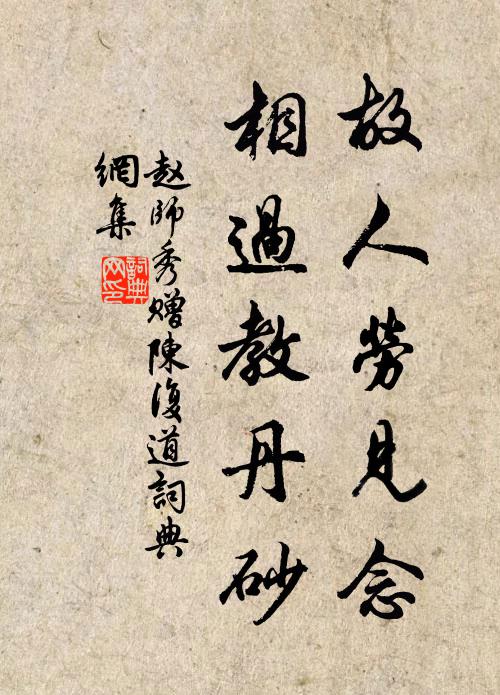 故人勞見念
相過教丹砂
赵師秀赠陳復道詞典
網集
詞典
网印